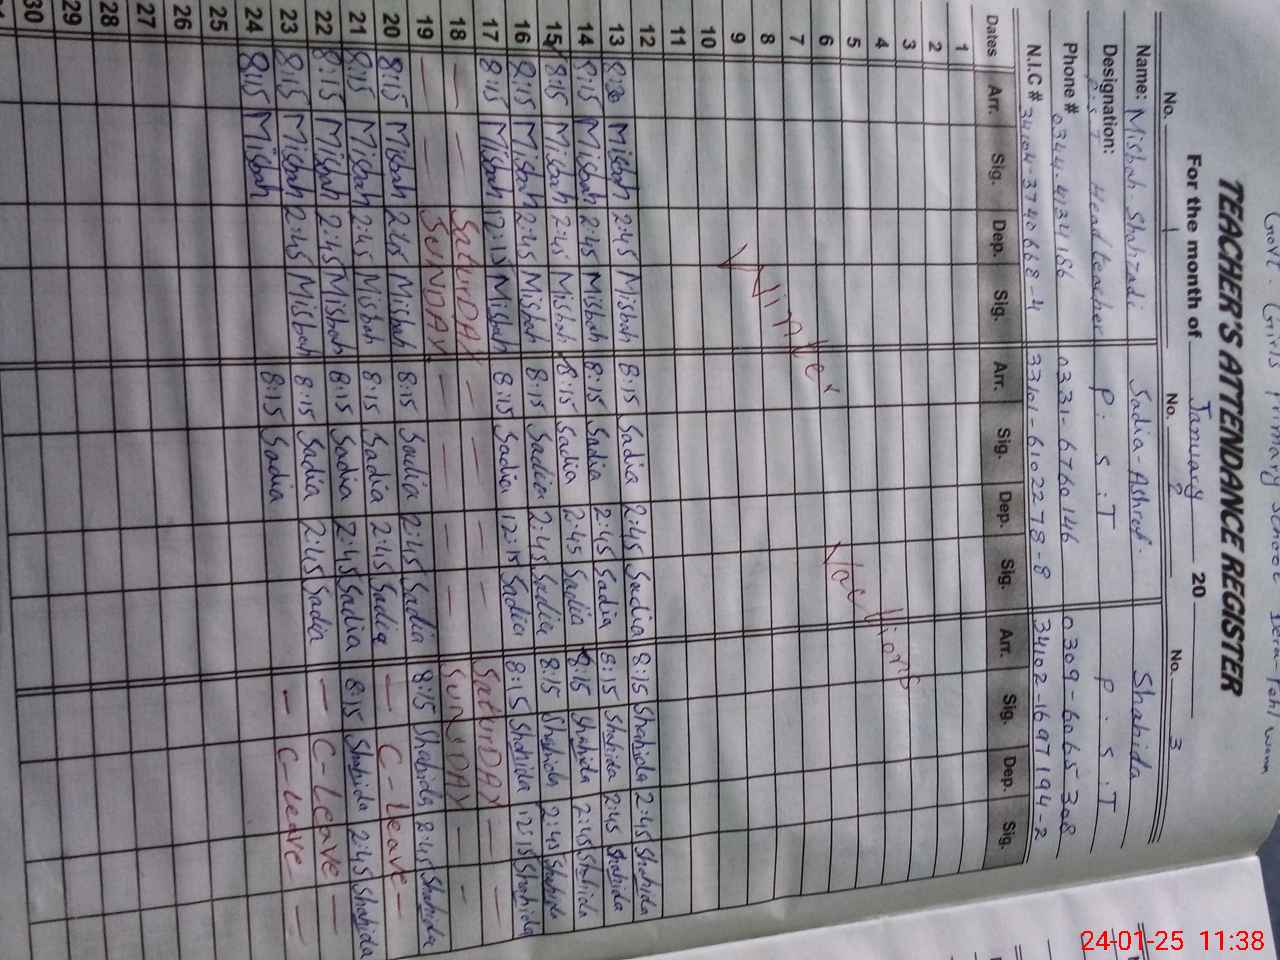 Govt. Girls Primary School
TEACHER'S ATTENDANCE REGISTER
For the month of January 20
No. 1 No. 2 No. 3
Name: Misbah-Shahzadi Sadia-Ashraf. Shahida
Designation: P.S.T Head teacher P.S.T P.S.T
Phone # 0344-4134186 0331-6760146 0309-6065308
N.I.C # 34104-3740668-4 33101-6102278-8 34102-1697194-2
Dates Arr. Sig. Dep. Sig. Arr. Sig. Dep. Sig. Arr. Sig. Dep. Sig.
1
2
3
4
5
6
7
8
9
Winter Vacations
10
11
12
13 8:20 Misbah 2:45 Misbah 8:15 Sadia 2:45 Sadia 8:15 Shahida 2:45 Shahida
14 8:15 Misbah 2:45 Misbah 8:15 Sadia 2:45 Sadia 8:15 Shahida 2:45 Shahida
15 8:15 Misbah 2:45 Misbah 8:15 Sadia 2:45 Sadia 8:15 Shahida 2:45 Shahida
16 8:15 Misbah 2:45 Misbah 8:15 Sadia 2:45 Sadia 8:15 Shahida 2:45 Shahida
17 8:15 Misbah 12:15 Misbah 8:15 Sadia 12:15 Sadia 8:15 Shahida 12:15 Shahida
18 — — SaturDAY — — — — SaturDAY — —
19 — — SUNDAY — — — — SUNDAY — —
20 8:15 Misbah 2:45 Misbah 8:15 Sadia 2:45 Sadia 8:15 Shahida 2:45 Shahida
21 8:15 Misbah 2:45 Misbah 8:15 Sadia 2:45 Sadia — C-Leave —
22 8:15 Misbah 2:45 Misbah 8:15 Sadia 2:45 Sadia 8:15 Shahida 2:45 Shahida
23 8:15 Misbah 2:45 Misbah 8:15 Sadia 2:45 Sadia — C-Leave —
24 8:15 Misbah 8:15 Sadia — C-Leave — —
25
26
27
28
29
30
24-01-25 11:38